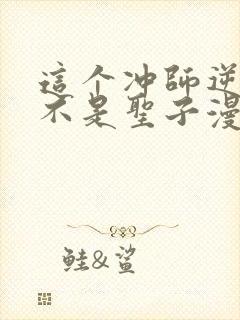 這个冲師逆
不是聖子漫
鮭&鲨